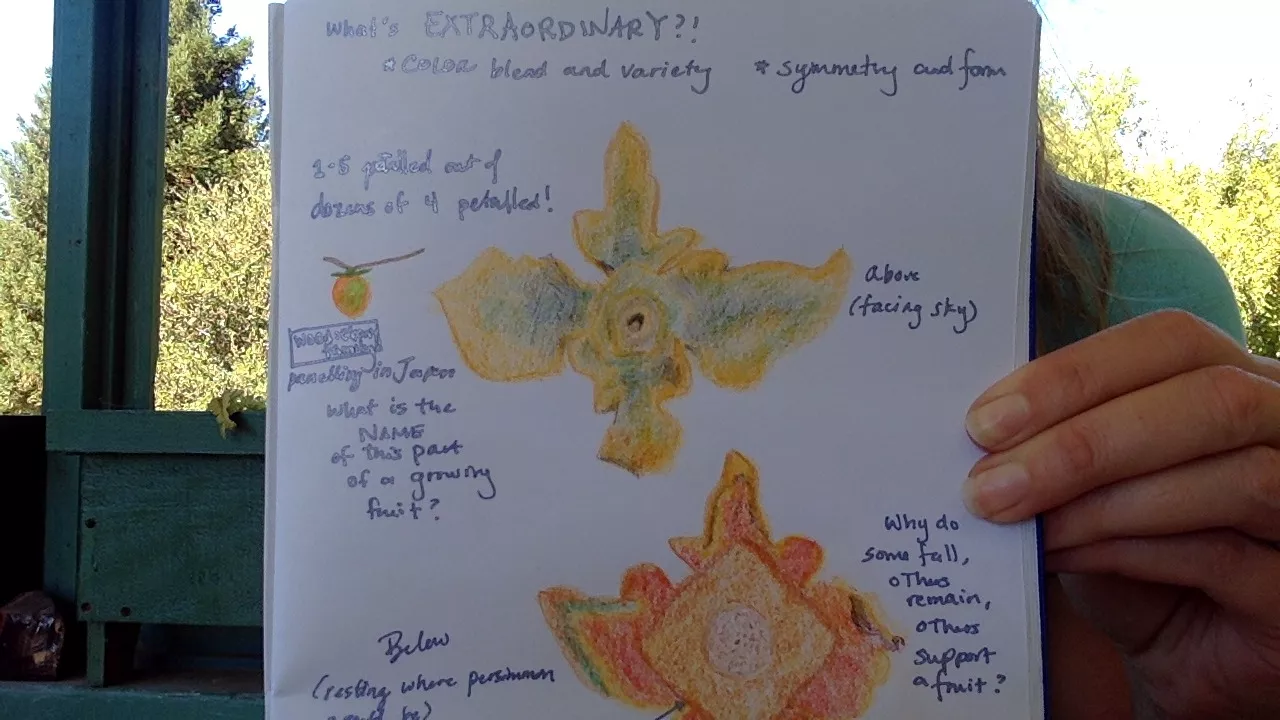 What's EXTRAORDINARY?!
* COLOR blend and variety * symmetry and form
1-5 petalled out of
dozens of 4 petalled!
Above
(facing sky)
panelling in Japan
What is the
NAME
of this part
of a growing
fruit?
Why do
some fall,
others
remain,
others
support
a fruit?
Below
(resting where persimmon